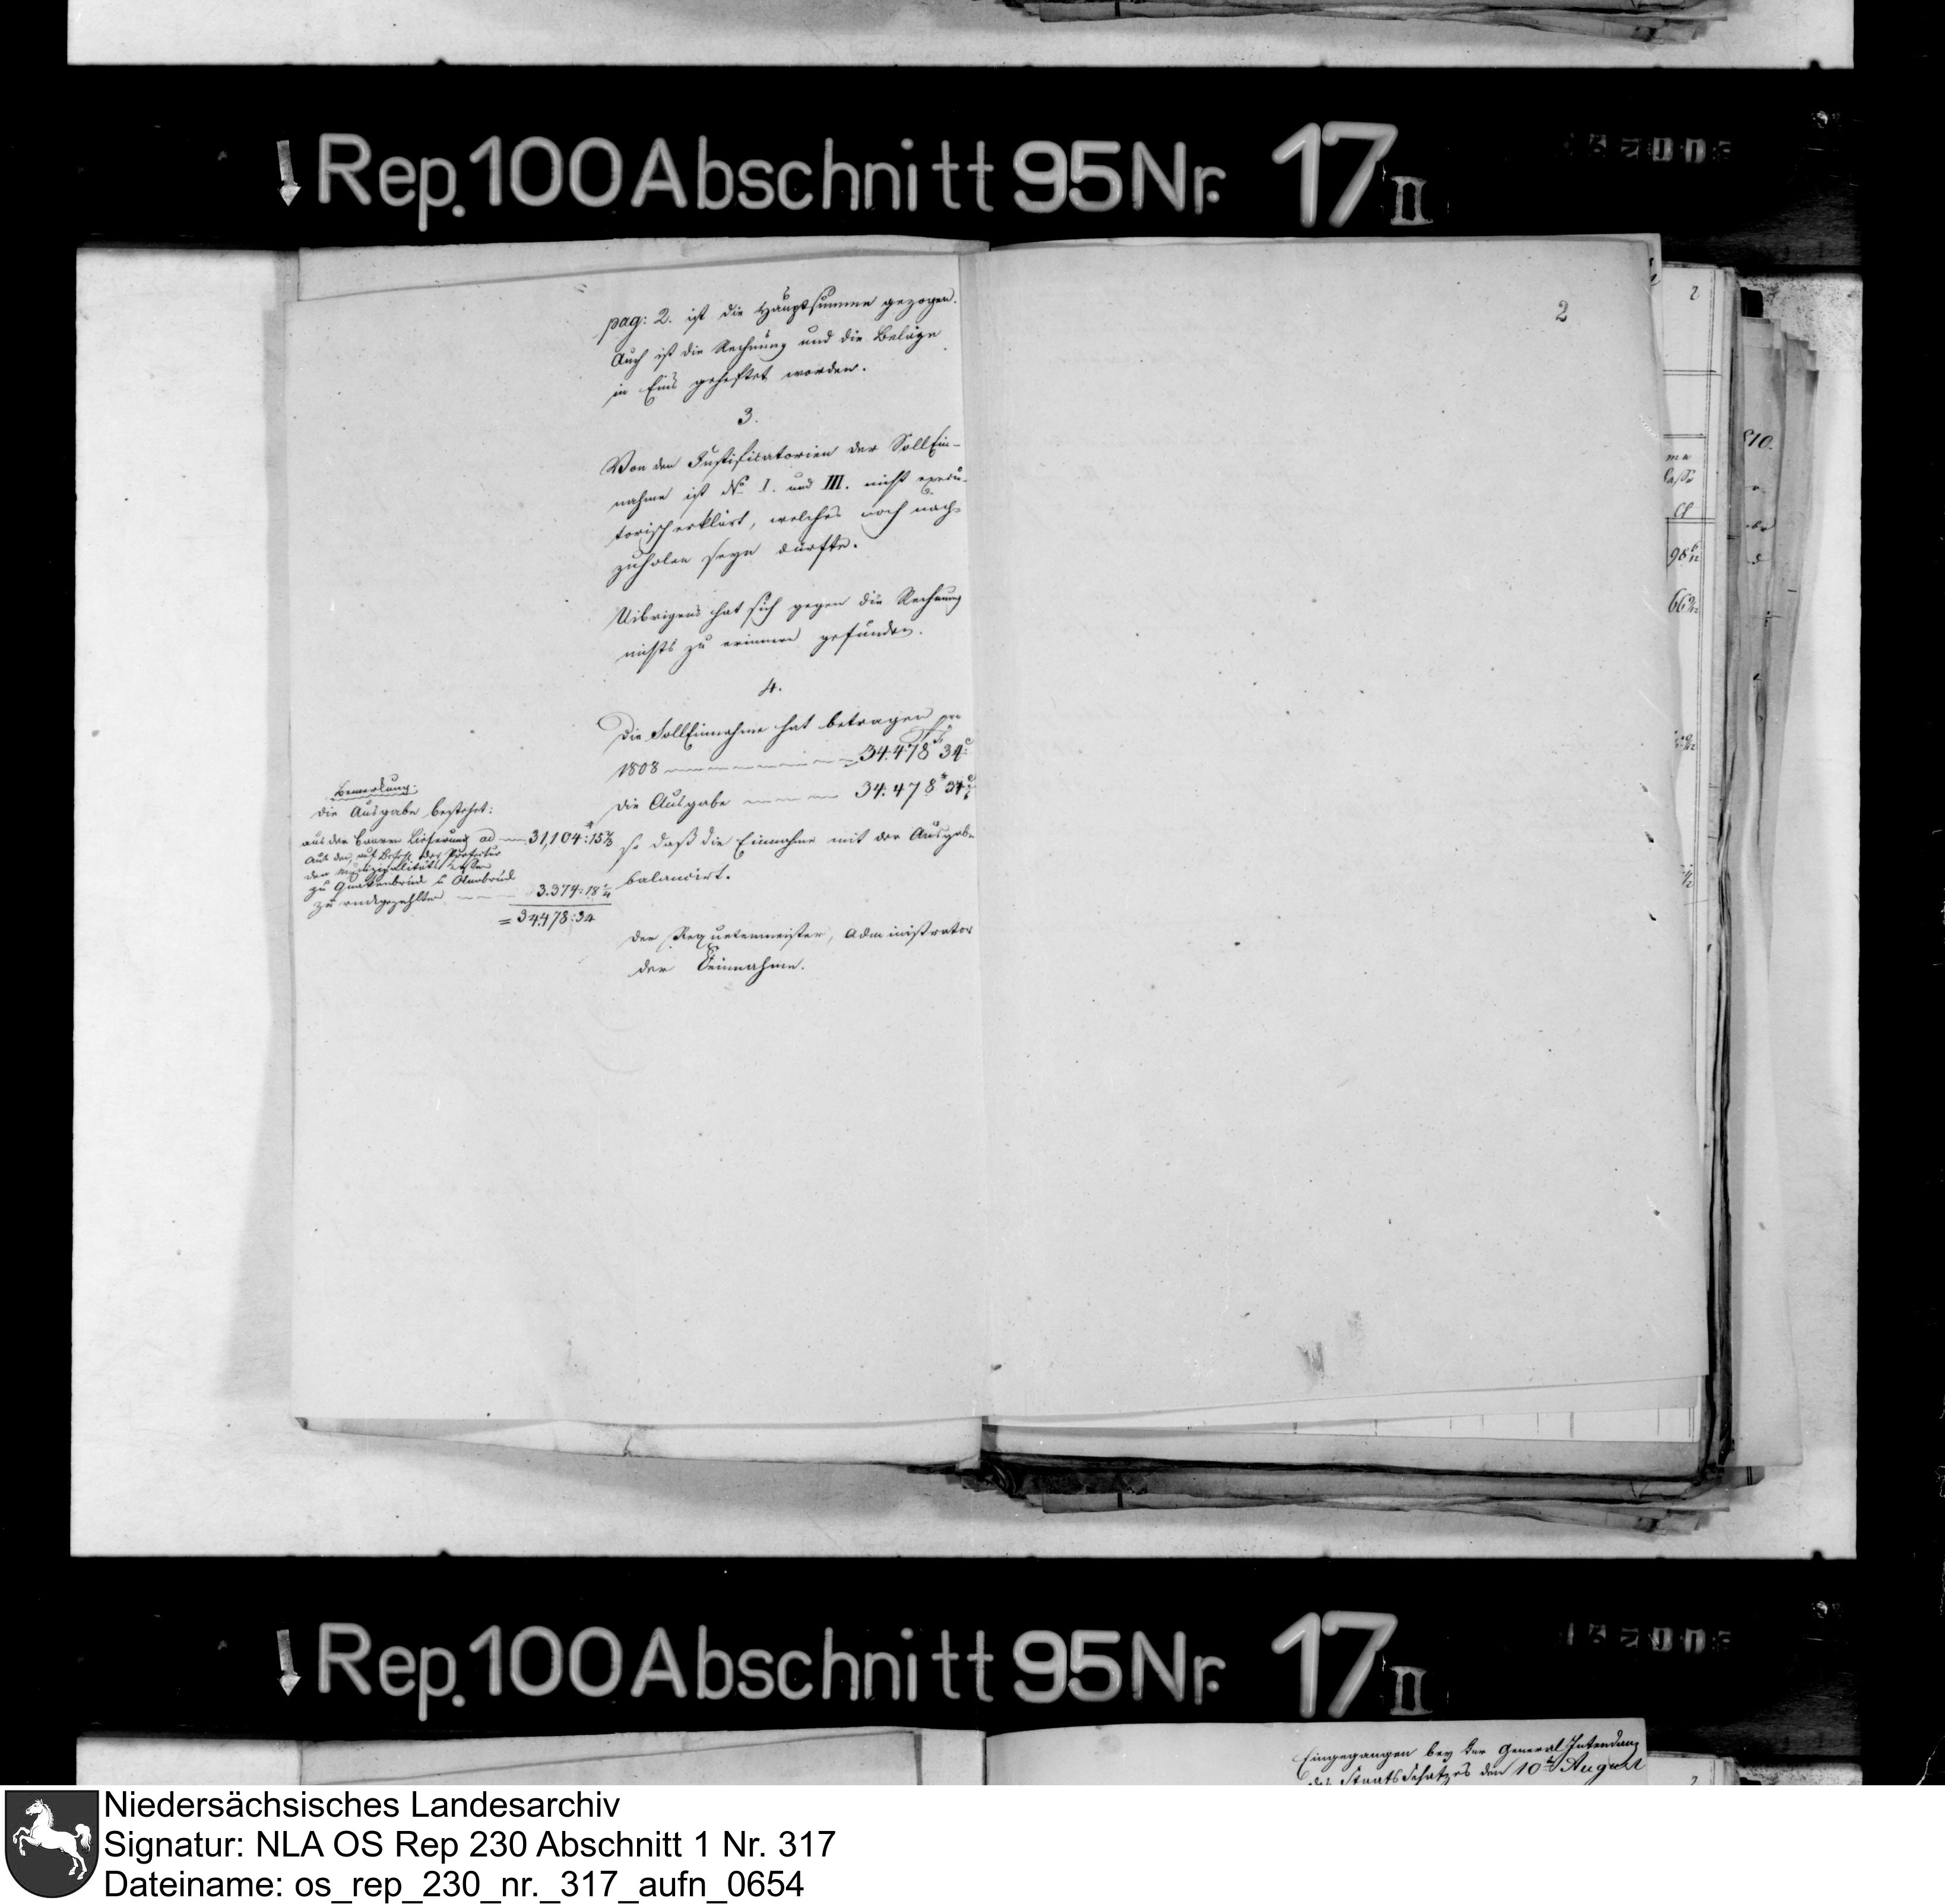 Rep. 100 Abschnitt 95 Nr. 17 II
pag: 2. ist die Hauptsumme gezogen.
Auch ist die Rechnung und die Beläge
in Eins geheftet worden.
3.
Von den Justificatorien der SollEin-
nahme ist No. I. und III. nicht execu-
torisch erklärt, welches noch nach-
zuholen seyn dürfte.
Uibrigens hat sich gegen die Rechnung
nichts zu erinnern gefunden.
4.
Die SollEinnahme hat betragen pro
1808 34.478 34
die Ausgabe 34.478 34
so daß die Einnahme mit der Ausgabe
balancirt.
Der Requetenmeister, Administrator
der Einnahme.
Bemerkung:
die Ausgabe bestehet:
aus der baaren Lieferung ad 31,104: 15
Aus den, auf der Präfectur
den Municipalitäts
zu Quakenbrück u Osnabrück
zurückgezahlten 3.374: 18
= 34.478: 34
2
2
810.
98
66
Rep. 100 Abschnitt 95 Nr. 17 II
Eingegangen bey der General Intendanz
des Staats Schatzes den 10ten August
Niedersächsisches Landesarchiv
Signatur: NLA OS Rep 230 Abschnitt 1 Nr. 317
Dateiname: os_rep_230_nr._317_aufn_0654